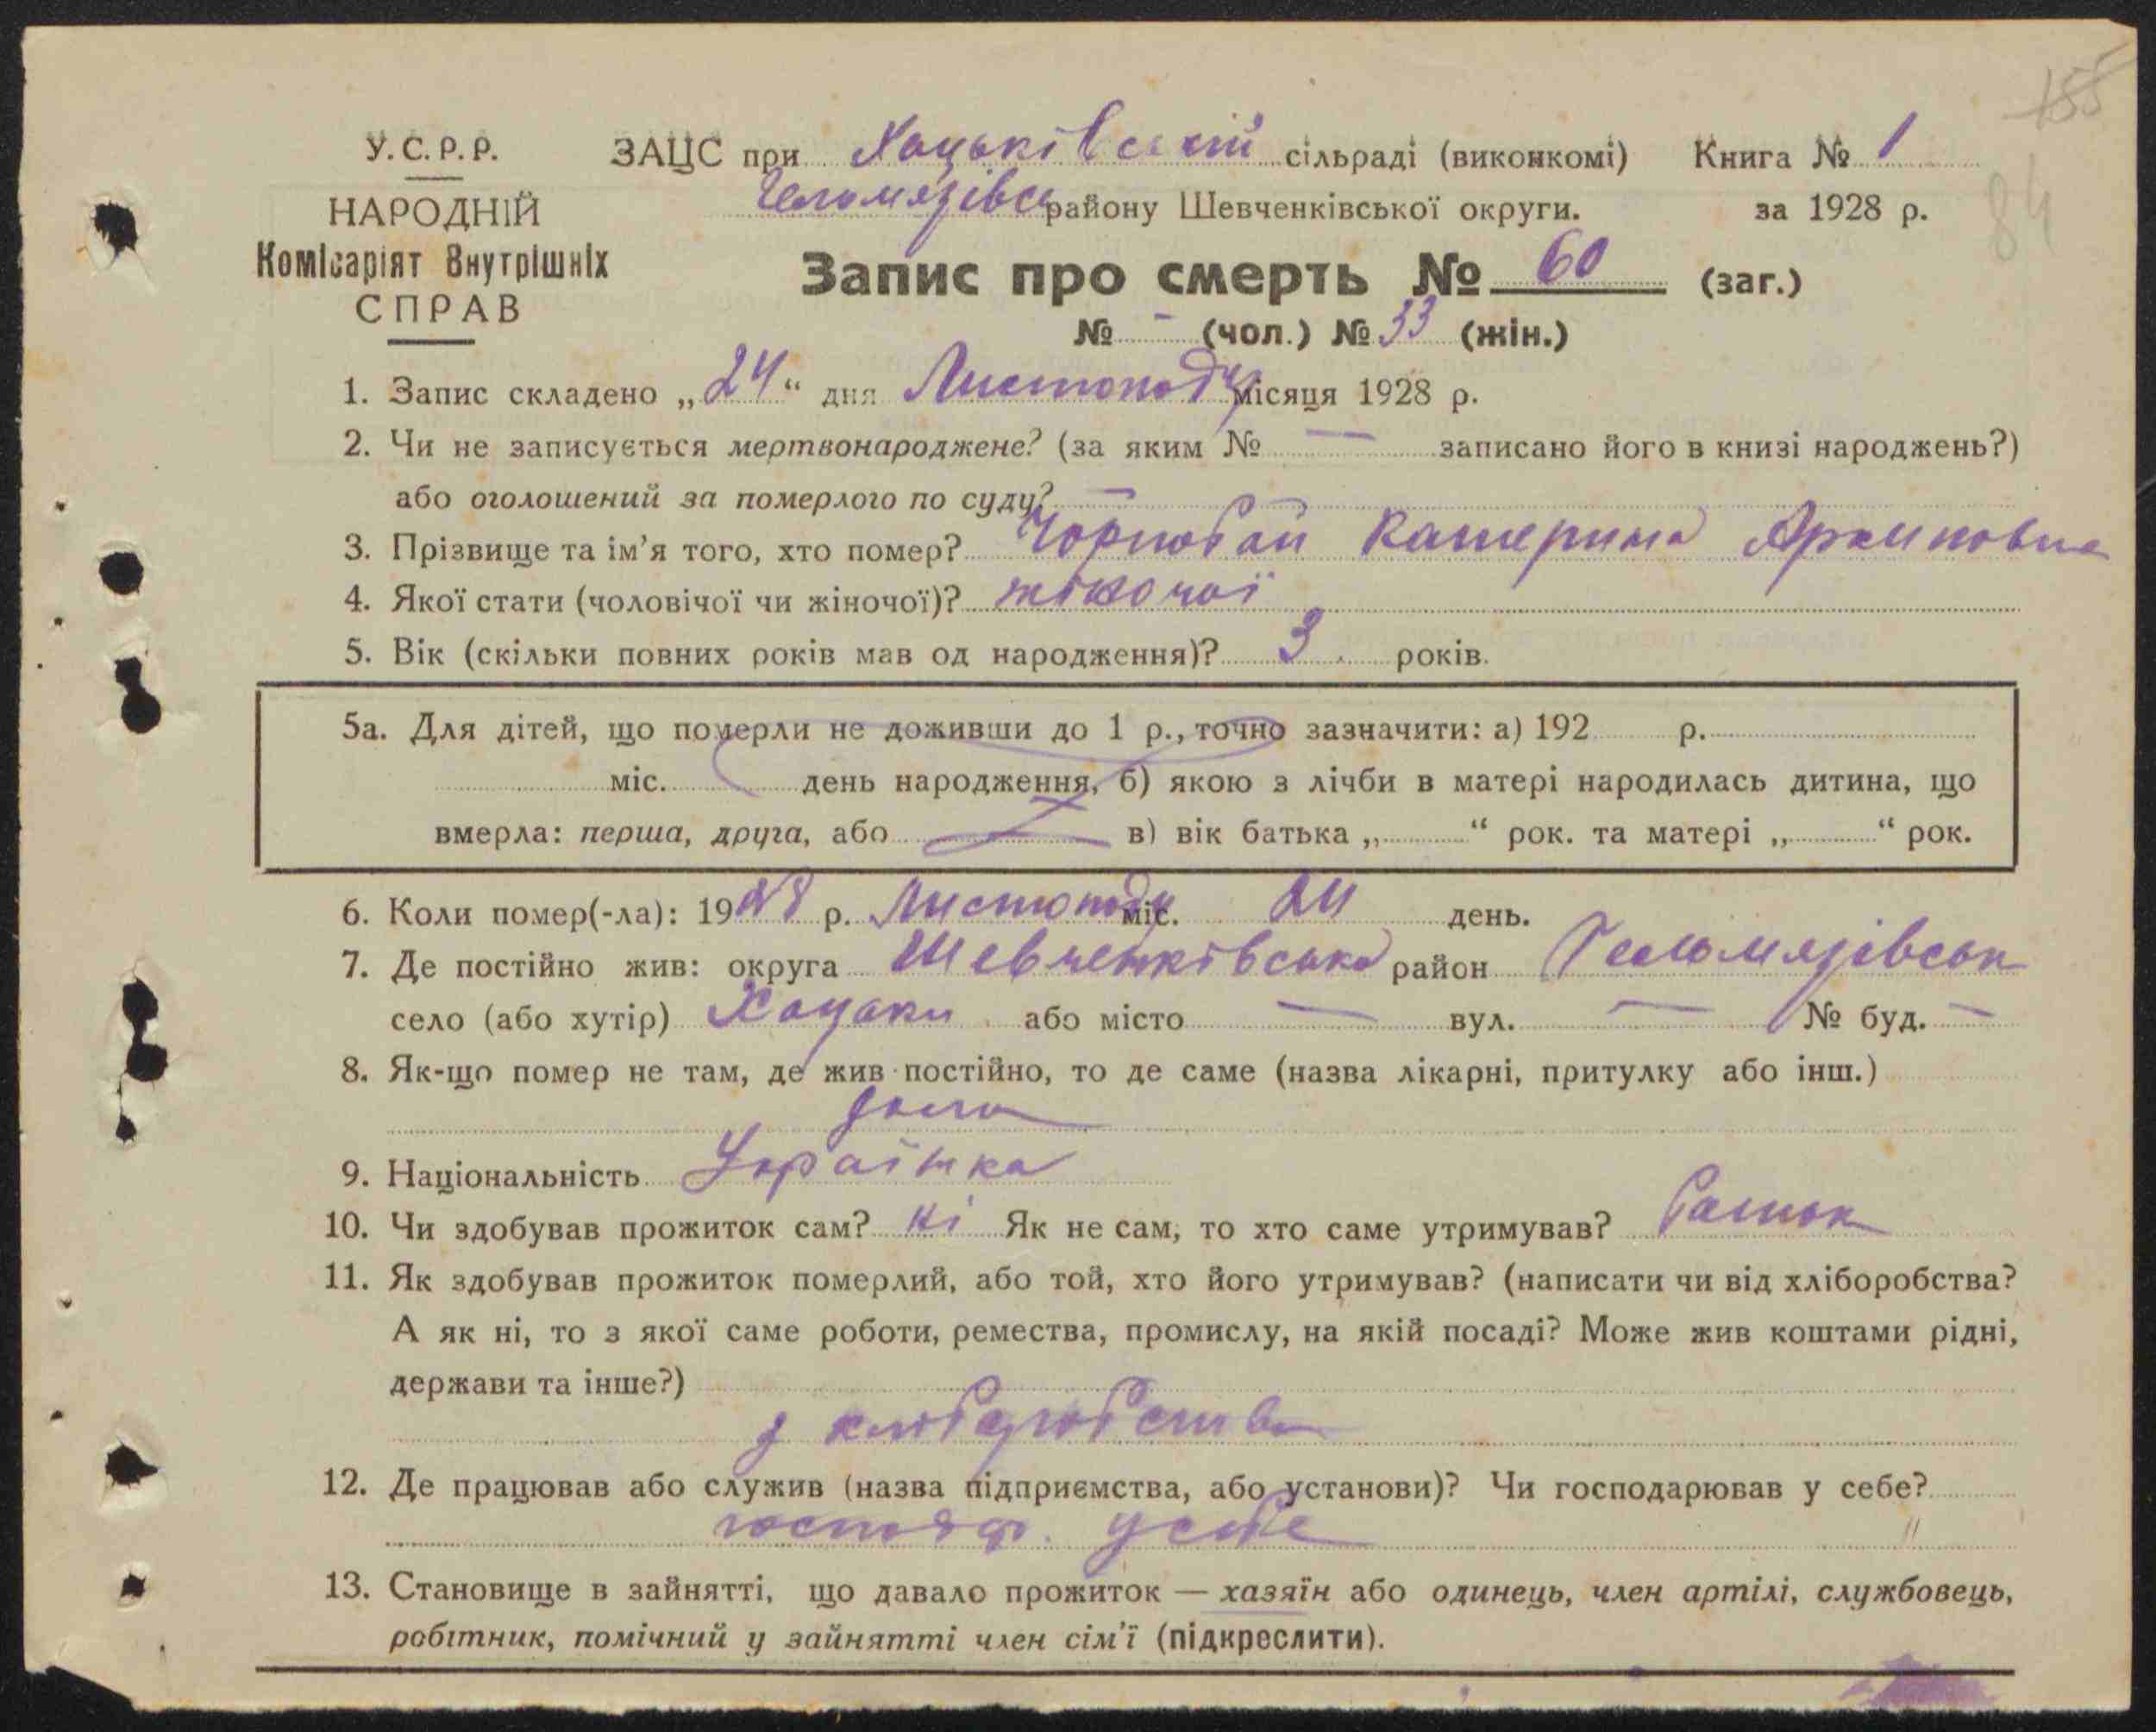 155
84
У.С.Р.Р.
НАРОДНІЙ
Комісаріят Внутрішніх
СПРАВ
ЗАЦС при Хоцьківській сільраді (виконкомі) Книга № 1
Гельмязівсь району Шевченківської округи. за 1928 р.
Запис про смерть № 60 (заг.)
№ - (чол.) № 33 (жін.)
1. Запис складено „24“ дня Листопаду місяця 1928 р.
2. Чи не записується мертвонароджене? (за яким № — записано його в книзі народжень?)
або оголошений за померлого по суду? —
3. Прізвище та ім'я того, хто помер? Чорнобай Катерина Архиповна
4. Якої стати (чоловічої чи жіночої)? жіночої
5. Вік (скільки повних років мав од народження)? 3 років.
5а. Для дітей, що померли не доживши до 1 р., точно зазначити: а) 192 р.
міс. день народження, б) якою з лічби в матері народилась дитина, що
вмерла: перша, друга, або в) вік батька „ “ рок. та матері „ “ рок.
6. Коли помер(-ла): 1928 р. Листопаду міс. 24 день.
7. Де постійно жив: округа Шевченківська район Гельмязівськ
село (або хутір) Хоцьки або місто — вул. — № буд. —
8. Як-що помер не там, де жив постійно, то де саме (назва лікарні, притулку або інш.)
дома
9. Національність Українка
10. Чи здобував прожиток сам? ні Як не сам, то хто саме утримував? батьок
11. Як здобував прожиток померлий, або той, хто його утримував? (написати чи від хліборобства?
А як ні, то з якої саме роботи, ремества, промислу, на якій посаді? Може жив коштами рідні,
держави та інше?)
з хліборобства
12. Де працював або служив (назва підприємства, або установи)? Чи господарював у себе?
господар. у себе
13. Становище в зайнятті, що давало прожиток — хазяїн або одинець, член артілі, службовець,
робітник, помічний у зайнятті член сім'ї (підкреслити).